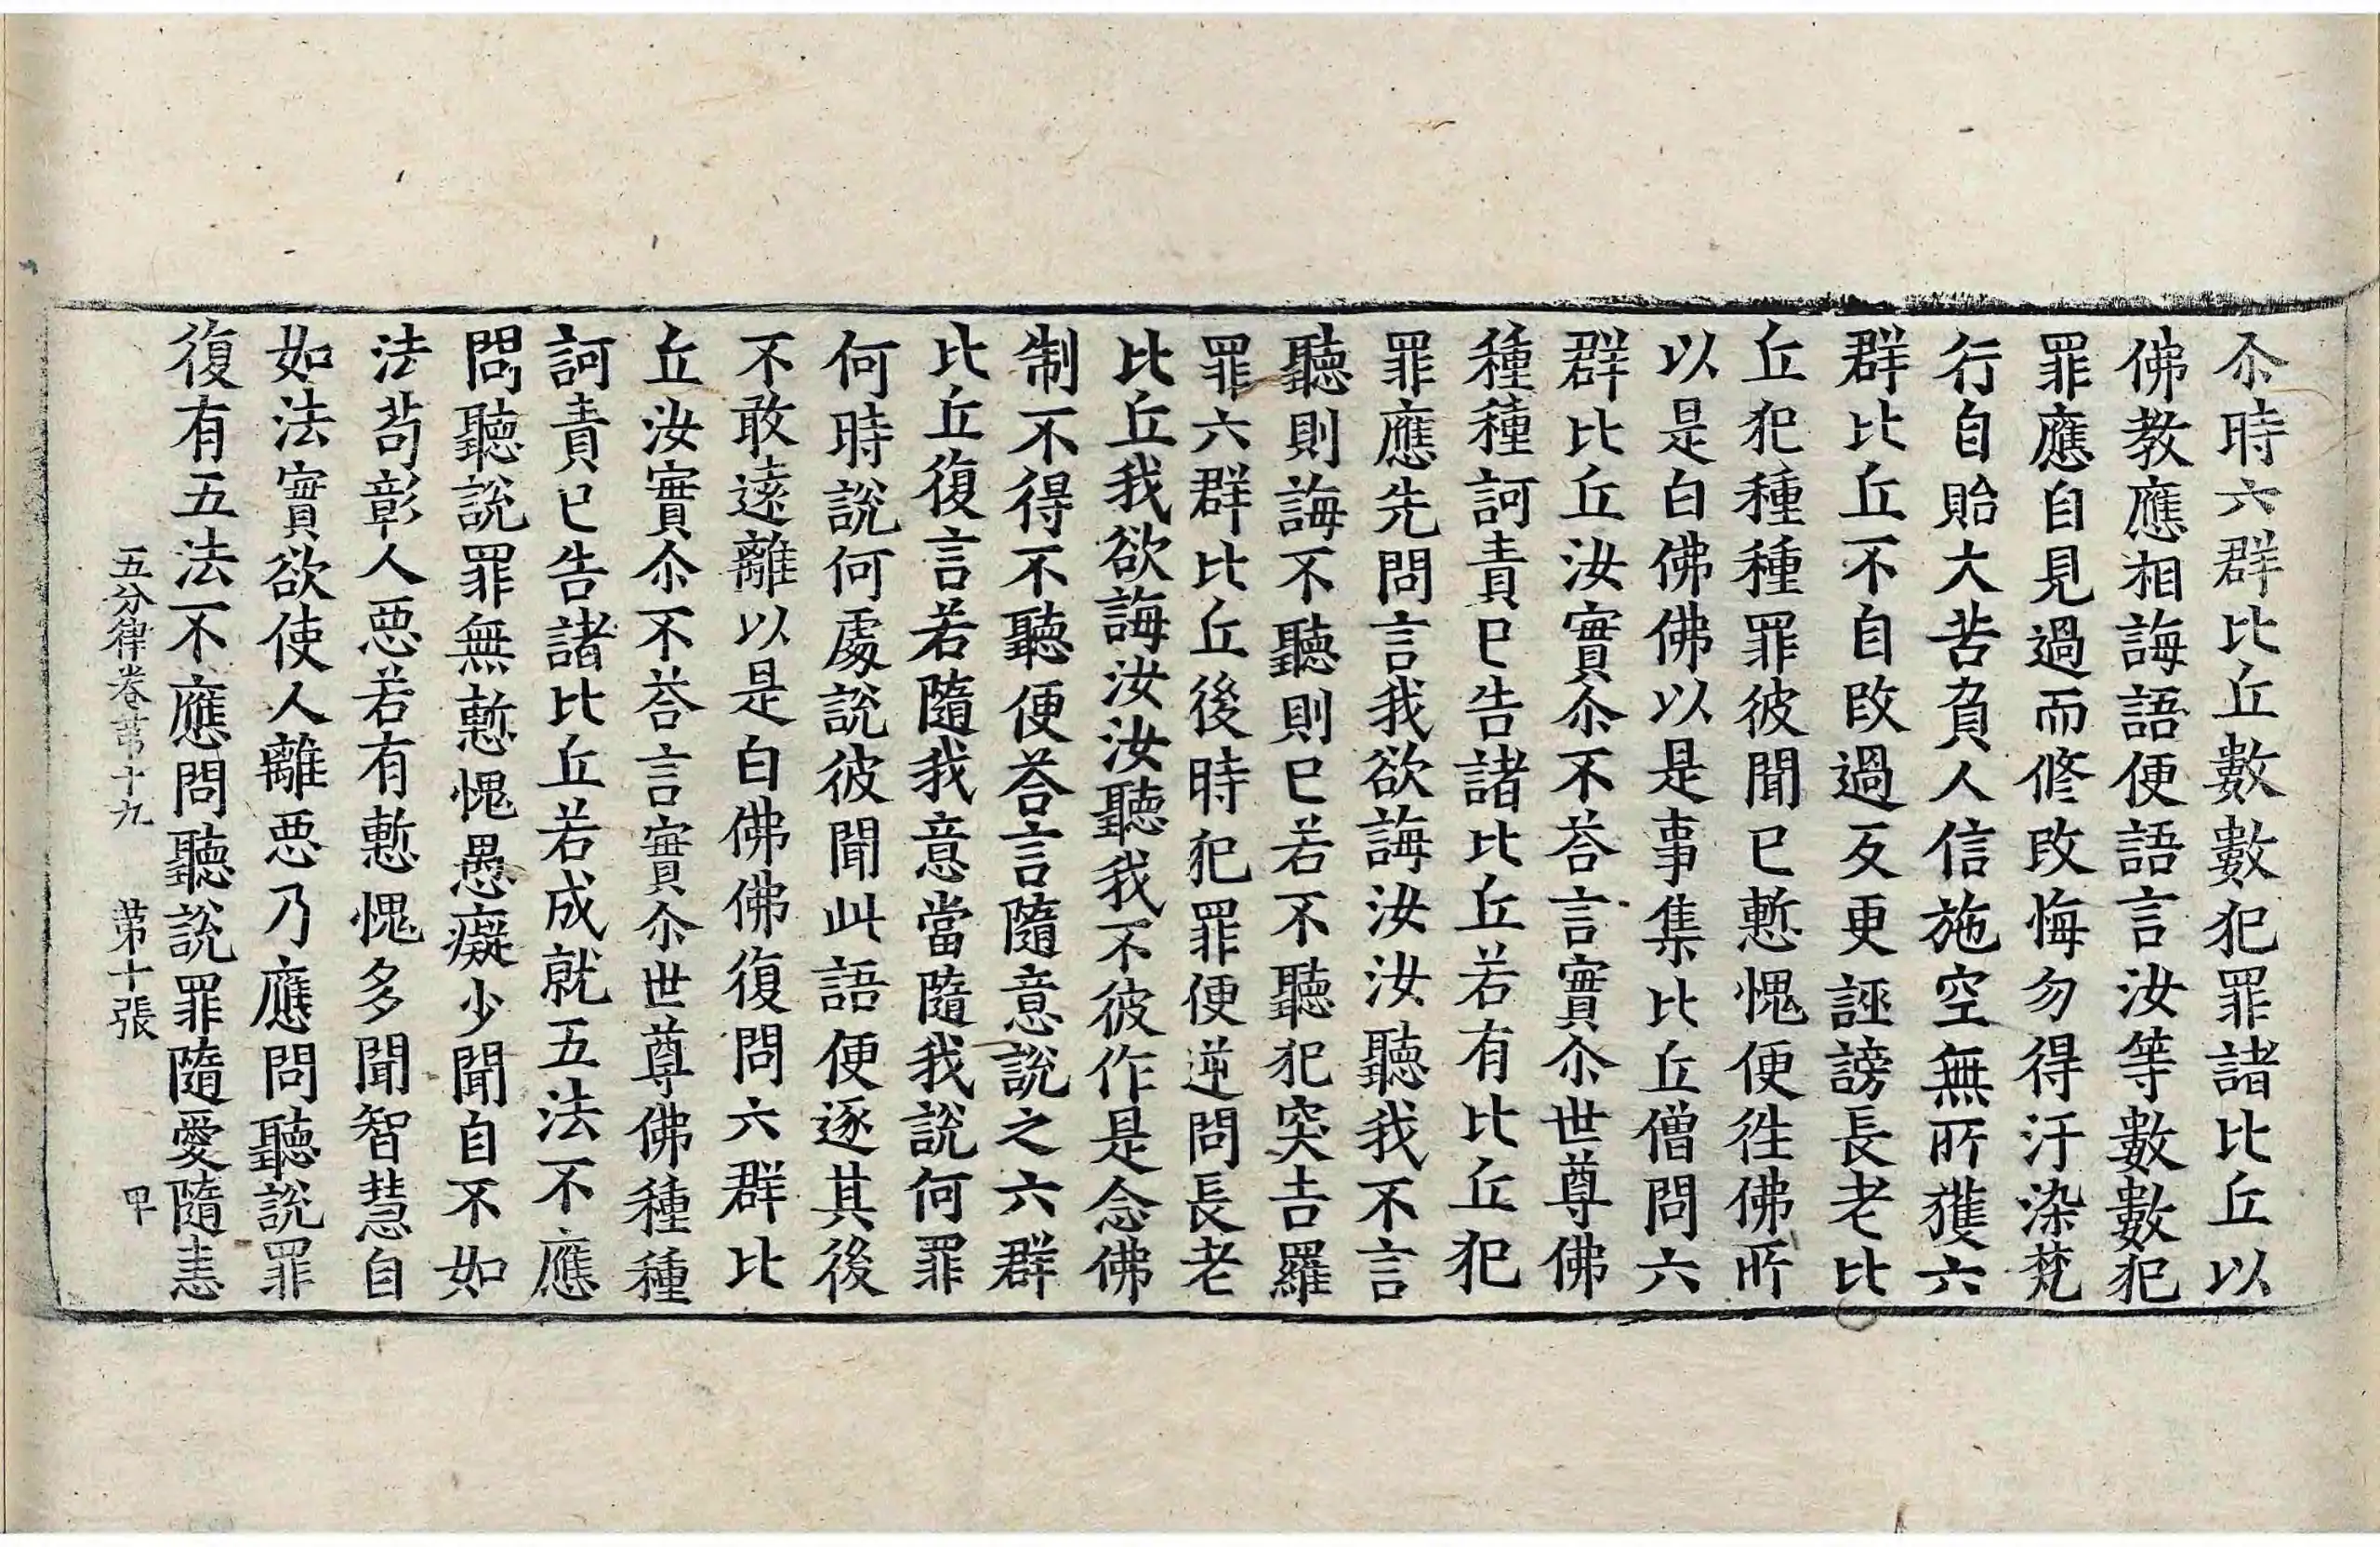 尒時六群比丘數數犯罪諸比丘以
佛教應相誨語便語言汝等數數犯
罪應自見過而修改悔勿得汙染梵
行自貽大苦負人信施空無所獲六
群比丘不自改過反更誣謗長老比
丘犯種種罪彼聞已慙愧便徃佛所
以是白佛佛以是事集比丘僧問六
群比丘汝實尒不荅言實尒世尊佛
種種訶責已告諸比丘若有比丘犯
罪應先問言我欲誨汝汝聽我不言
聽則誨不聽則已若不聽犯突吉羅
罪六群比丘後時犯罪便逆問長老
比丘我欲誨汝汝聽我不彼作是念佛
制不得不聽便荅言隨意說之六群
比丘復言若隨我意當隨我說何罪
何時說何處說彼聞此語便逐其後
不敢遠離以是白佛佛復問六群比
丘汝實尒不荅言實尒世尊佛種種
訶責已告諸比丘若成就五法不應
問聽說罪無慙愧愚癡少聞自不如
法苟彰人惡若有慙愧多聞智慧自
如法實欲使人離惡乃應問聽說罪
復有五法不應問聽說罪隨愛隨恚
五分律卷苐十九 苐十張 甲